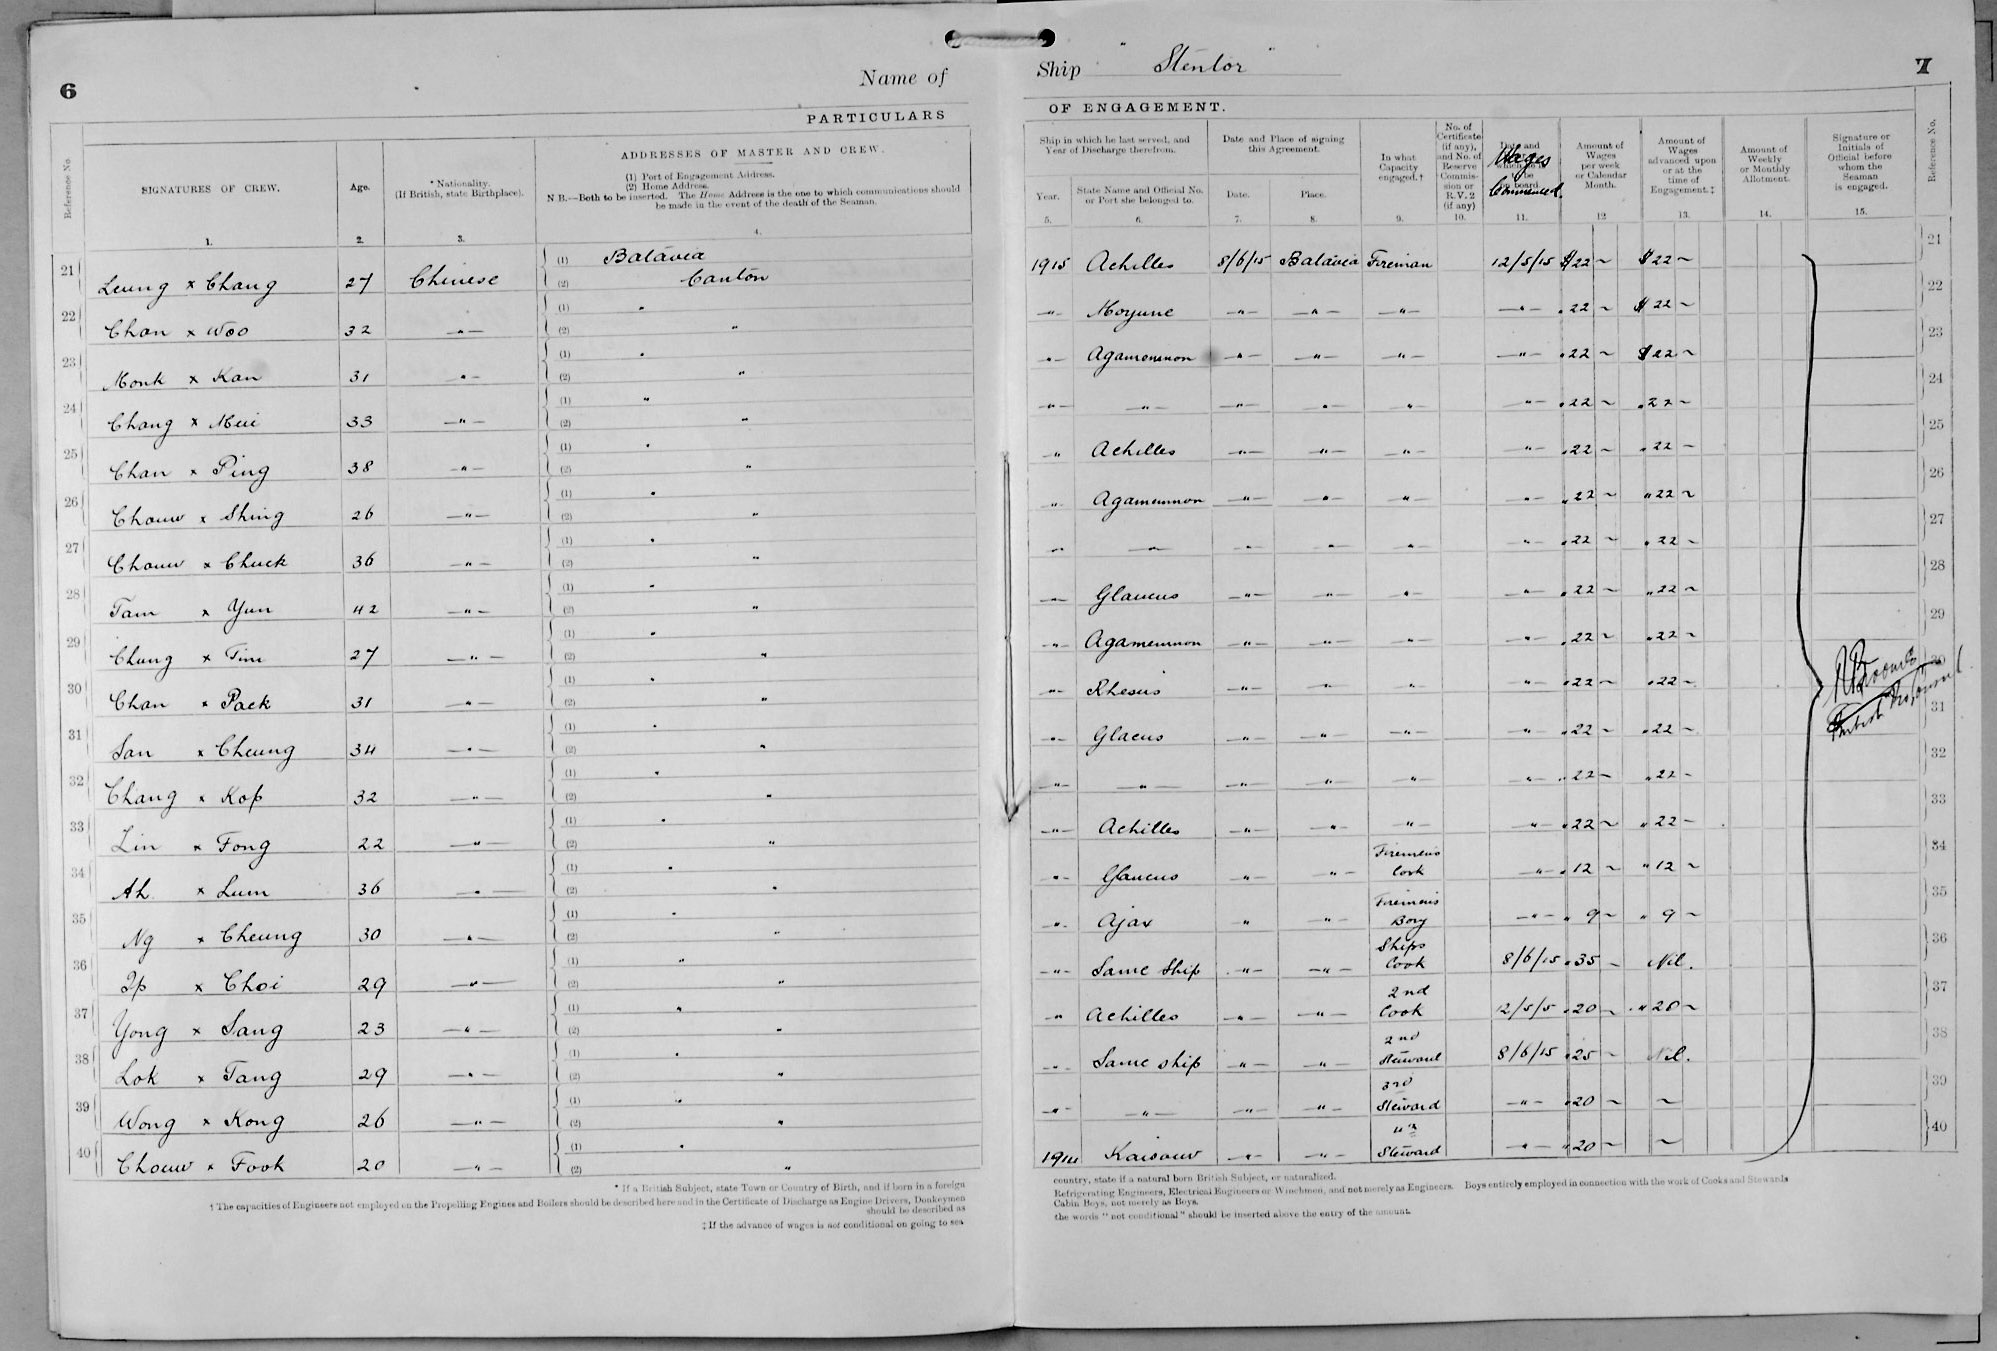 6
Name of
Ship " Stentor "
7
PARTICULARS
OF ENGAGEMENT.
Reference No.
SIGNATURES OF CREW.
1.
Age.
2.
* Nationality.
(If British, state Birthplace).
3.
ADDRESSES OF MASTER AND CREW.
(1) Port of Engagement Address.
(2) Home Address.
N B.—Both to be inserted. The Home Address is the one to which communications should
be made in the event of the death of the Seaman.
4.
Ship in which he last served, and
Year of Discharge therefrom.
Year.
5.
State Name and Official No.
or Port she belonged to.
6.
Date and Place of signing
this Agreement.
Date.
7.
Place.
8.
In what
Capacity
engaged.†
9.
No. of
Certificate
(if any),
and No. of
Reserve
Commis-
sion or
R.V.2
(if any)
10.
Wages
Commenced.
11.
Amount of
Wages
per week
or Calendar
Month.
12
Amount of
Wages
advanced upon
or at the
time of
Engagement.‡
13.
Amount of
Weekly
or Monthly
Allotment.
14.
Signature or
Initials of
Official before
whom the
Seaman
is engaged.
15.
Reference No.
21 Leung x Chang 27 Chinese (1) Batavia (2) Canton 1915 Achilles 8/6/15 Batavia Fireman 12/5/15 $22 ~ $22 ~ 21
22 Chan x Woo 32 -"- (1) " (2) " -"- Moyune -"- -"- -"- -"- "22 ~ $22 ~ 22
23 Monk x Kan 31 -"- (1) " (2) " -"- Agamemnon -"- -"- -"- -"- "22 ~ $22 ~ 23
24 Chang x Mui 33 -"- (1) " (2) " -"- -"- -"- -"- -"- -"- "22 ~ "22 ~ 24
25 Chan x Ping 38 -"- (1) " (2) " " Achilles -"- -"- -"- -"- "22 ~ "22 ~ 25
26 Chouw x Shing 26 -"- (1) " (2) " -"- Agamemnon -"- -"- -"- -"- "22 ~ "22 ~ 26
27 Chouw x Chuck 36 -"- (1) " (2) " -"- -"- -"- -"- -"- -"- "22 ~ "22 ~ 27
28 Tam x Yun 42 -"- (1) " (2) " -"- Glaucus -"- -"- -"- -"- "22 ~ "22 ~ 28
29 Chung x Tim 27 -"- (1) " (2) " -"- Agamemnon -"- -"- -"- -"- "22 ~ "22 ~ 29
30 Chan x Pack 31 -"- (1) " (2) " -"- Rhesus -"- " -"- -"- "22 ~ "22 ~ 30
31 San x Cheung 34 -"- (1) " (2) " -"- Glacus -"- -"- -"- -"- "22 ~ "22 ~ 31
32 Chang x Kop 32 -"- (1) " (2) " -"- -"- -"- -"- -"- -"- "22 ~ "22 ~ 32
33 Lin x Fong 22 -"- (1) " (2) " -"- Achilles -"- -"- -"- -"- "22 ~ "22 ~ 33
34 Ah x Lum 36 -"- (1) " (2) " -"- Glaucus -"- -"- Firemen's Cook -"- "12 ~ "12 ~ 34
35 Ng x Cheung 30 -"- (1) " (2) " -"- Ajax -"- -"- Firemen's Boy -"- " 9 ~ " 9 ~ 35
36 Ip x Choi 29 -"- (1) " (2) " -"- Same Ship -"- -"- Ships Cook 8/6/15 "35 ~ Nil. 36
37 Yong x Sang 23 -"- (1) " (2) " -"- Achilles -"- -"- 2nd Cook 12/5/5 "20 ~ "20 ~ 37
38 Lok x Tang 29 -"- (1) " (2) " -"- Same ship -"- -"- 2nd Steward 8/6/15 "25 ~ Nil. 38
39 Wong x Kong 26 -"- (1) " (2) " -"- -"- -"- -"- 3rd Steward -"- "20 ~ ~ 39
40 Chouw x Fook 20 -"- (1) " (2) " 1914 Kaisouw -"- -"- Steward -"- "20 ~ ~ 40
* If a British Subject, state Town or Country of Birth, and if born in a foreign
country, state if a natural born British Subject, or naturalized.
† The capacities of Engineers not employed on the Propelling Engines and Boilers should be described here and in the Certificate of Discharge as Engine Drivers, Donkeymen
Refrigerating Engineers, Electrical Engineers or Winchmen, and not merely as Engineers. Boys entirely employed in connection with the work of Cooks and Stewards
should be described as
Cabin Boys, not merely as Boys.
‡ If the advance of wages is not conditional on going to sea
the words "not conditional" should be inserted above the entry of the amount.